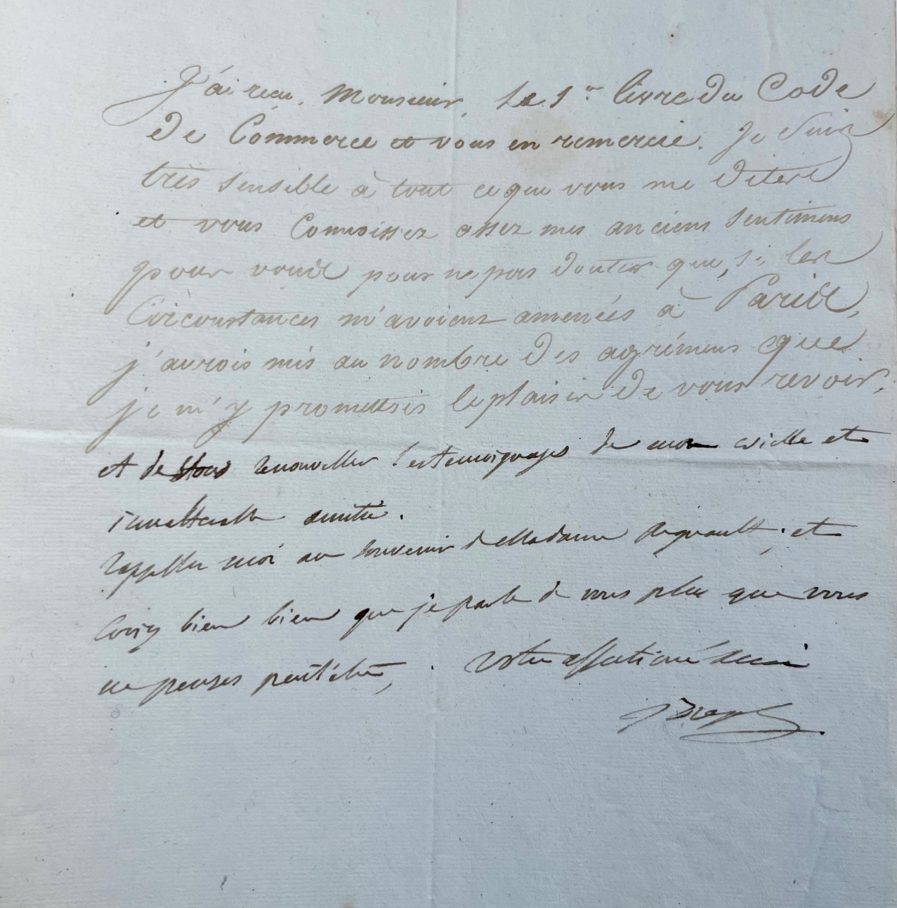 J'ai reçu, Monsieur, le 1er livre du Code
de Commerce et vous en remercie. Je suis
très sensible à tout ce que vous me dites
et vous connoissez assez mes anciens sentimens
pour vous pour ne pas douter que, si les
circonstances m'avoient amenées à Paris,
j'aurois mis au nombre des agrémens que
je m'y promettois le plaisir de vous revoir,
et de vous renouveller les temoignages de mon vieille et
inaltérable amitié.
rappellez moi au souvenir de Madame Regnault, et
croiez bien bien que je parle de vous plus que vous
ne pensez peut être, votre affectioné ami
Joseph